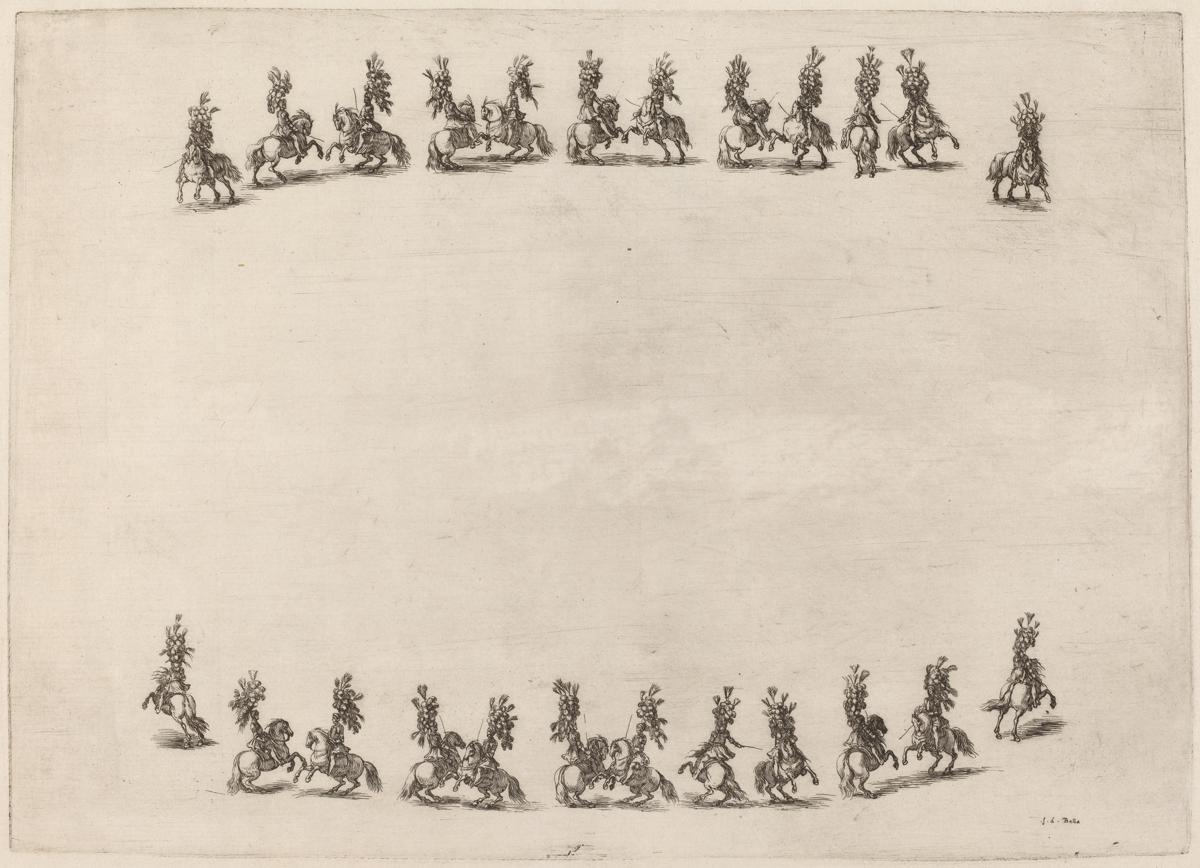 S. d. Bella